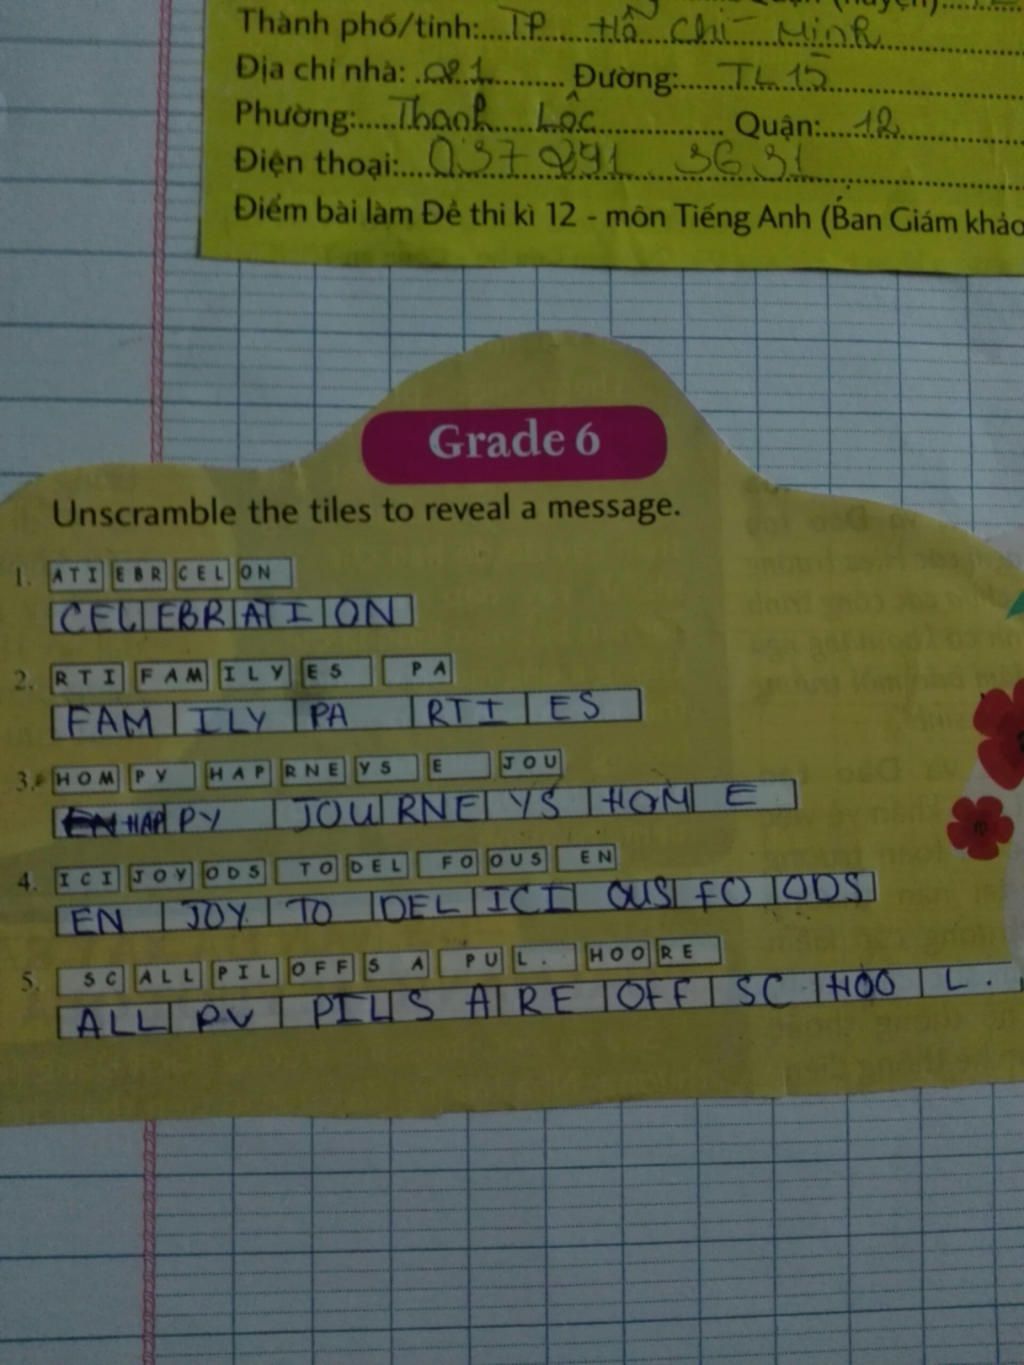 Thành phố/tỉnh:....TP Hồ Chí Minh
Địa chỉ nhà: 021 Đường: TL15
Phường: Thạnh Lộc Quận: 12
Điện thoại: 037 891 3631
Điểm bài làm Đề thi kì 12 - môn Tiếng Anh (Ban Giám khảo
Grade 6
Unscramble the tiles to reveal a message.
1. ATI EBR CEL ON
CEL EBR ATI ON
2. RTI FAM ILY ES PA
FAM ILY PA RTI ES
3. HOM PY HAP RNE YS E JOU
HAP PY JOU RNE YS HOM E
4. ICI JOY ODS TO DEL FO OUS EN
EN JOY TO DEL ICI OUS FO ODS
5. SC ALL PIL OFF S A PU L. HOO RE
ALL PU PIL S A RE OFF SC HOO L.